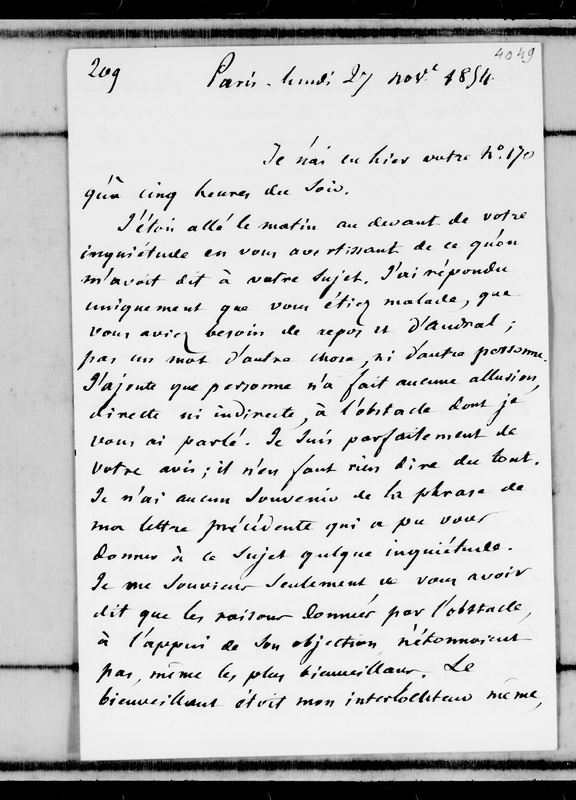 4049
209
Paris - lundi 27 nov.^e 1854.
Je n'ai eu hier votre N°. 170
qu'à cinq heures du soir.
J'étois allé le matin au devant de votre
inquiétude en vous avertissant de ce qu'on
m'avoit dit à votre sujet. J'ai répondu
uniquement que vous étiez malade, que
vous aviez besoin de repos et d'Andral ;
pas un mot d'autre chose, ni d'autre personne.
J'ajoute que personne n'a fait aucune allusion,
directe ni indirecte, à l'obstacle dont je
vous ai parlé. Je suis parfaitement de
votre avis ; il n'en faut rien dire du tout.
Je n'ai aucun souvenir de la phrase de
ma lettre précédente qui a pu vous
donner à ce sujet quelque inquiétude.
Je me souviens seulement de vous avoir
dit que les raisons données par l'obstacle,
à l'appui de son objection, n'étonnoient
pas, même les plus bienveillans. Le
bienveillant étoit mon interlocuteur même,